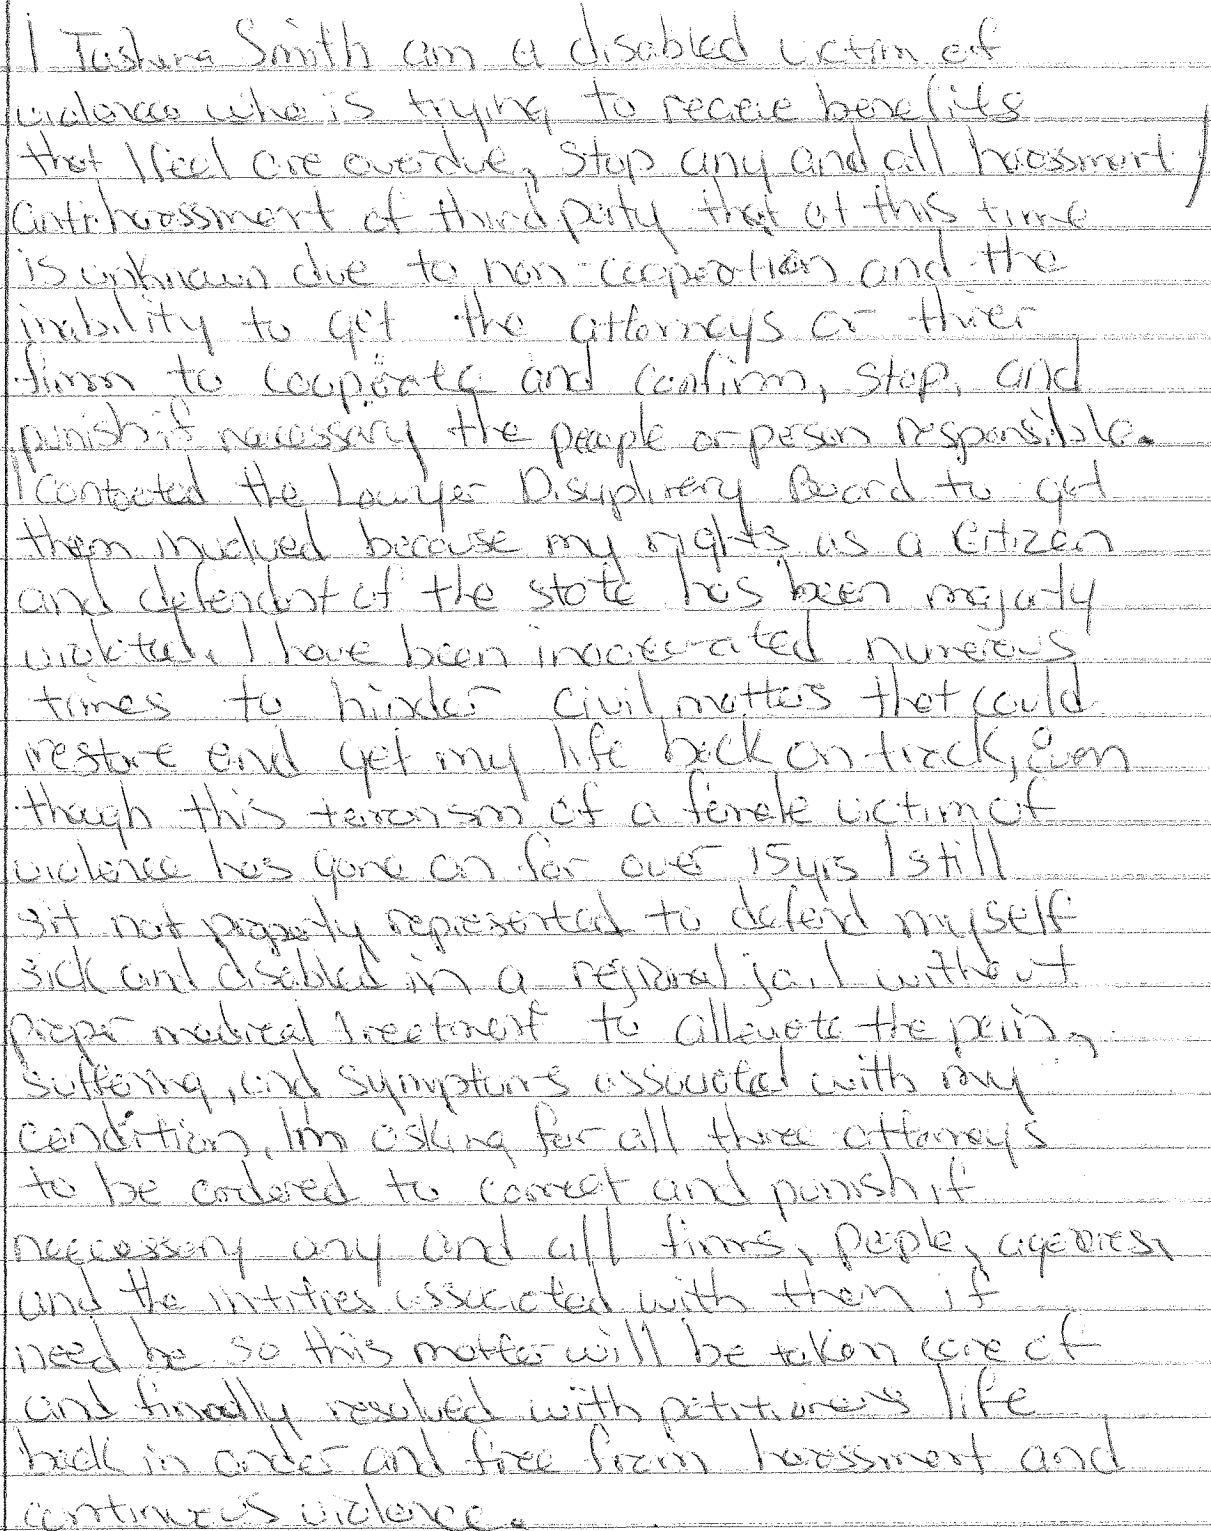 I Tashina Smith am a disabled victim of
violence who is trying to receive benefits
that I feel are overdue, stop any and all harassment/
antiharassment of third party that at this time
is unknown due to non-cooperation and the
inability to get the attorneys or thier
firm to cooperate and confirm, stop, and
punish if necessary the people or person responsible.
I contacted the Lawyer Disyplinery Board to get
them involved because my rights as a citizen
and defendant of the state has been majorly
violated. I have been incarcerated numerous
times to hinder civil matters that could
restore and get my life back on track, even
though this terrorism of a female victim of
violence has gone on for over 15yrs I still
sit not properly represented to defend myself
sick and disabled in a regional jail without
proper medical treatment to alleviate the pain,
suffering, and symptoms associated with my
condition, Im asking for all three attorneys
to be ordered to correct and punish if
neccessary any and all firms, people, agencies,
and the intities associated with them if
need be so this matter will be taken care of
and finally resolved with petitioners life
back in order and free from harassment and
continuous violence.